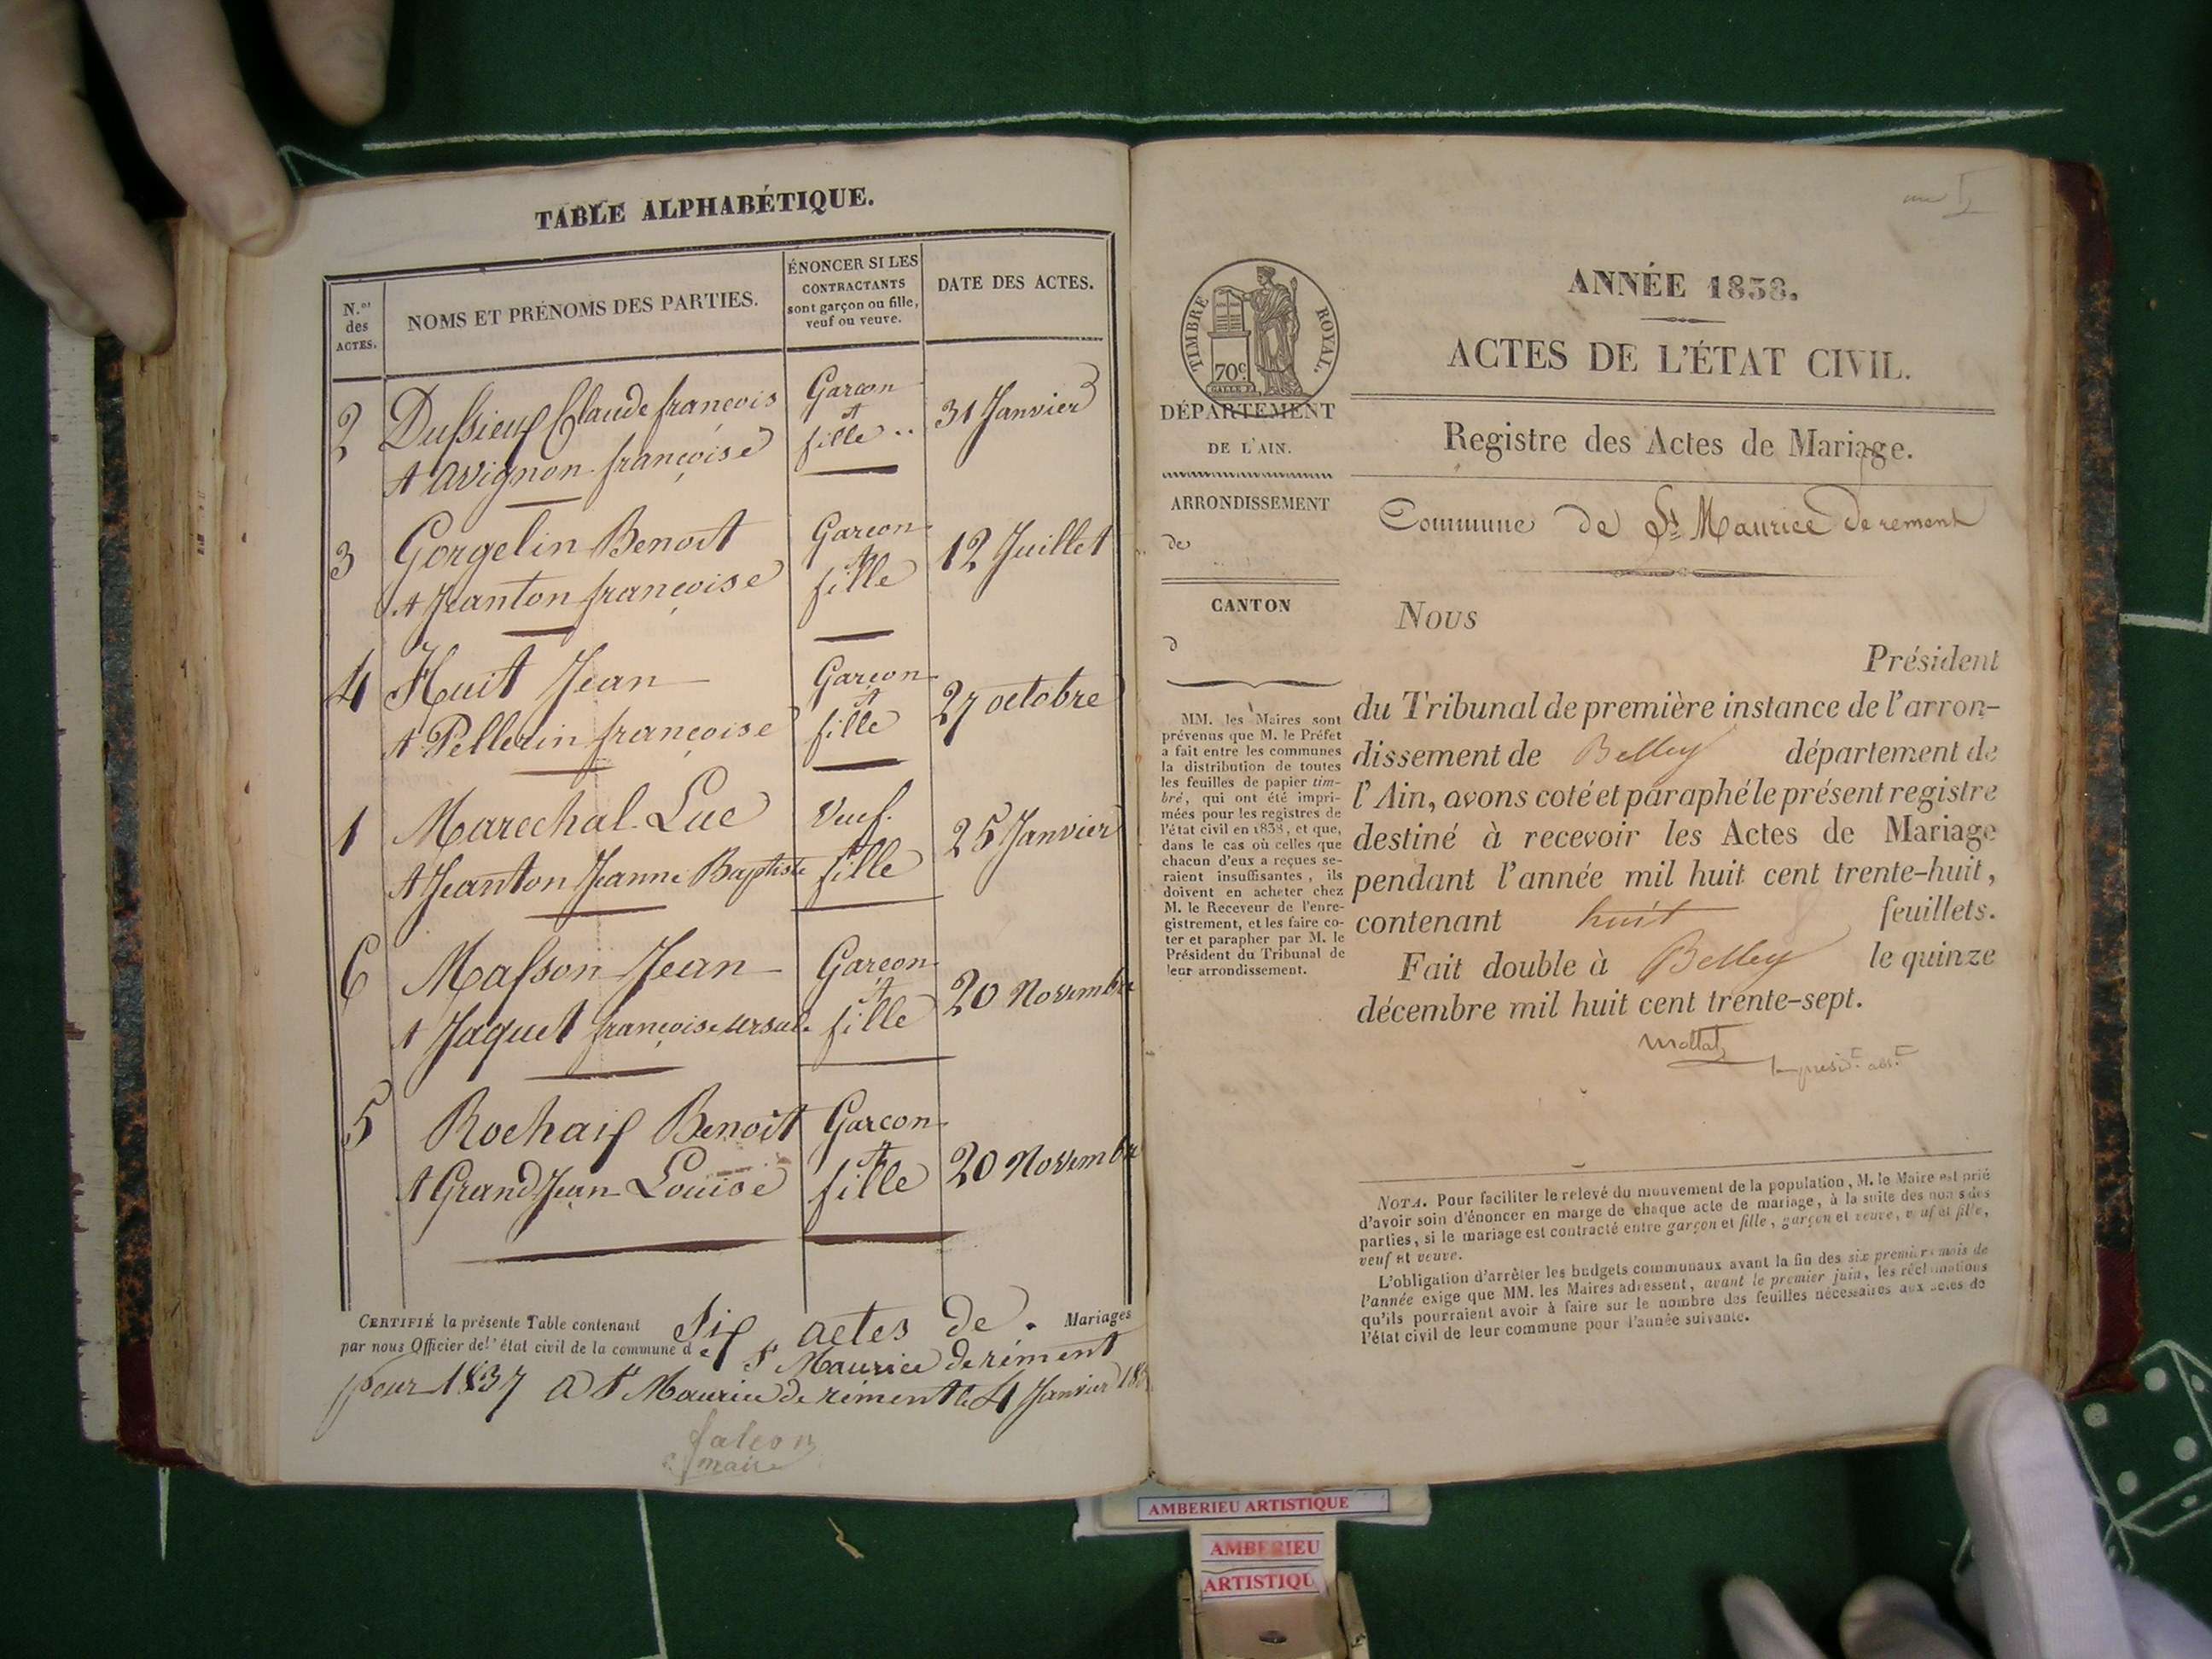 TABLE ALPHABÉTIQUE.
N.os
des
ACTES.
NOMS ET PRÉNOMS DES PARTIES.
ÉNONCER SI LES
CONTRACTANTS
sont garçon ou fille,
veuf ou veuve.
DATE DES ACTES.
2 Dussieux Claude françois Garcon 31 Janvier
et avignon françoise et fille
3 Gorgelin Benoit Garcon 12 Juillet
et Jeanton françoise et fille
4 Huit Jean Garcon 27 octobre
et Pellerin françoise et fille
1 Marechal Luc Veuf. 25 Janvier
et Jeanton Jeanne Baptiste et fille
6 Masson Jean Garcon 20 Novembre
et Jaquet françoise ursule et fille
5 Rochaix Benoit Garcon 20 Novembre
et Grand Jean Louise et fille
CERTIFIÉ la présente Table contenant Six actes de Mariages
par nous Officier de l'état civil de la commune de St Maurice de rément
pour 1837 A St Maurice de rément le 4 Janvier 183
falcon
maire
ANNÉE 1838.
ACTES DE L'ÉTAT CIVIL.
Registre des Actes de Mariage.
Commune de St Maurice de rement
TIMBRE ROYAL.
70c.
DÉPARTEMENT
DE L'AIN.
ARRONDISSEMENT
de
CANTON
d
MM. les Maires sont
prévenus que M. le Préfet
a fait entre les communes
la distribution de toutes
les feuilles de papier tim-
bré, qui ont été impri-
mées pour les registres de
l'état civil en 1838, et que,
dans le cas où celles que
chacun d'eux a reçues se-
raient insuffisantes, ils
doivent en acheter chez
M. le Receveur de l'enre-
gistrement, et les faire co-
ter et parapher par M. le
Président du Tribunal de
leur arrondissement.
Nous
Président
du Tribunal de première instance de l'arron-
dissement de Belley département de
l'Ain, avons coté et paraphé le présent registre
destiné à recevoir les Actes de Mariage
pendant l'année mil huit cent trente-huit,
contenant huit feuillets.
Fait double à Belley le quinze
décembre mil huit cent trente-sept.
NOTA. Pour faciliter le relevé du mouvement de la population, M. le Maire est prié
d'avoir soin d'énoncer en marge de chaque acte de mariage, à la suite des noms des
parties, si le mariage est contracté entre garçon et fille, garçon et veuve, veuf et fille,
veuf et veuve.
L'obligation d'arrêter les budgets communaux avant la fin des six premiers mois de
l'année exige que MM. les Maires adressent, avant le premier juin, les réclamations
qu'ils pourraient avoir à faire sur le nombre des feuilles nécessaires aux actes de
l'état civil de leur commune pour l'année suivante.
AMBERIEU ARTISTIQUE
AMBERIEU
ARTISTIQU